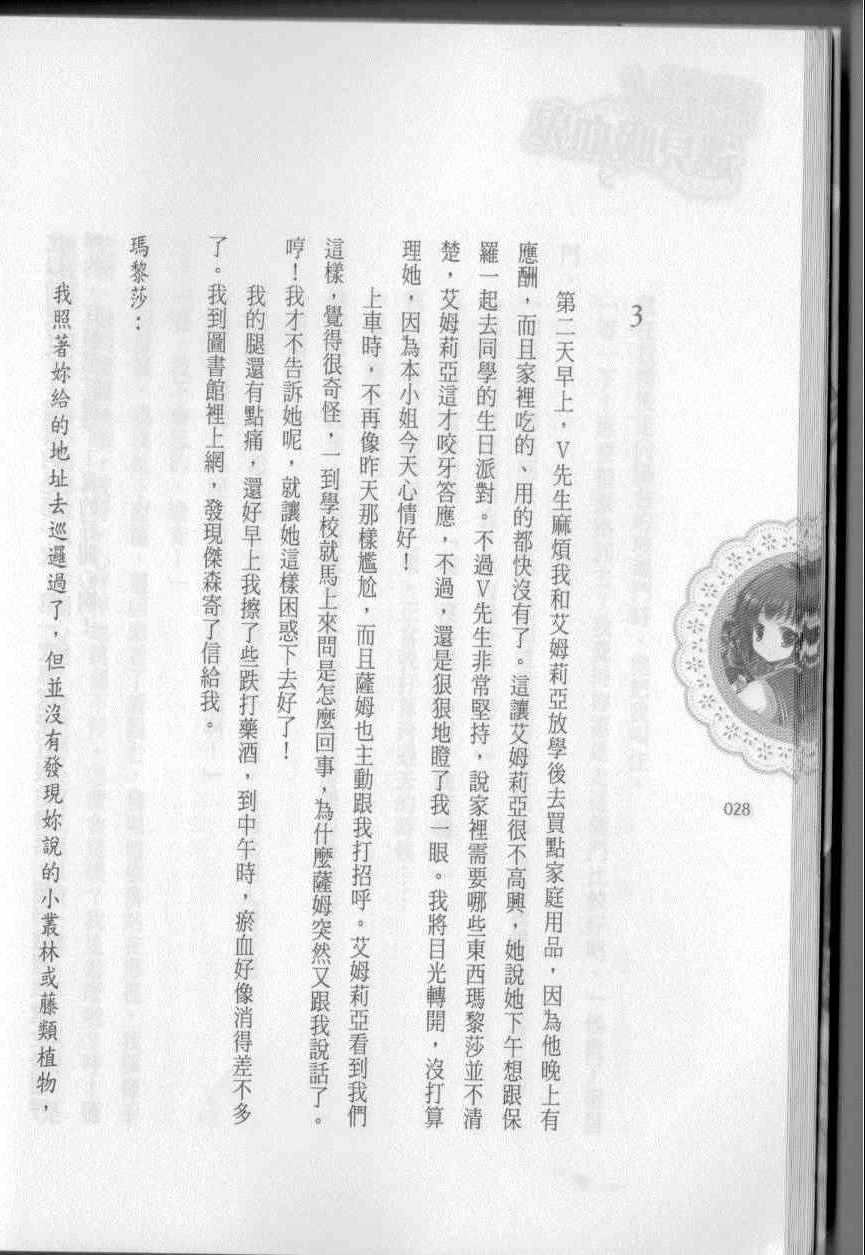 3
第二天早上，V先生麻煩我和艾姆莉亞放學後去買點家庭用品，因為他晚上有
應酬，而且家裡吃的、用的都快沒有了。這讓艾姆莉亞很不高興，她說她下午想跟保
羅一起去同學的生日派對。不過V先生非常堅持，說家裡需要哪些東西瑪黎莎並不清
楚，艾姆莉亞這才咬牙答應，不過，還是狠狠地瞪了我一眼。我將目光轉開，沒打算
理她，因為本小姐今天心情好！
上車時，不再像昨天那樣尷尬，而且薩姆也主動跟我打招呼。艾姆莉亞看到我們
這樣，覺得很奇怪，一到學校就馬上來問是怎麼回事，為什麼薩姆突然又跟我說話了。
哼！我才不告訴她呢，就讓她這樣困惑下去好了！
我的腿還有點痛，還好早上我擦了些跌打藥酒，到中午時，瘀血好像消得差不多
了。我到圖書館裡上網，發現傑森寄了信給我。
瑪黎莎：
我照著妳給的地址去巡邏過了，但並沒有發現妳說的小叢林或藤類植物，
028